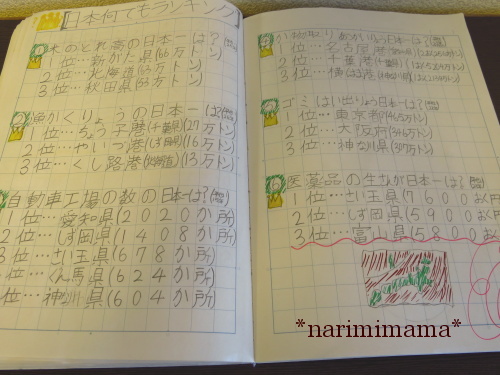 日本何でもランキング
米のとれ高の日本一は?
1位…新がた県(66万トン)
2位…北海道(63万トン)
3位…秋田県(53万トン)
漁かくりょうの日本一は?
1位…ちょう子港(千葉県)(27万トン)
2位…やいづ港(しず岡県)(16万トン)
3位…くし路港(北海道)(13万トン)
自動車工場の数の日本一は?
1位…愛知県(2020か所)
2位…しず岡県(1408か所)
3位…さい玉県(678か所)
位…ぐん馬県(624か所)
位…神奈川県(604か所)
日本一は?
1位…名古屋港
2位…千葉港
3位…横はま港
ゴミはい出りょう日本一は?
1位…東京都(465万トン)
2位…大阪府(346万トン)
3位…神な川県(307万トン)
医薬品の生さんが日本一は?
1位…さい玉県(7600おく円
2位…しず岡県(5900おく
3位…富山県(5800おく
*narimimama*